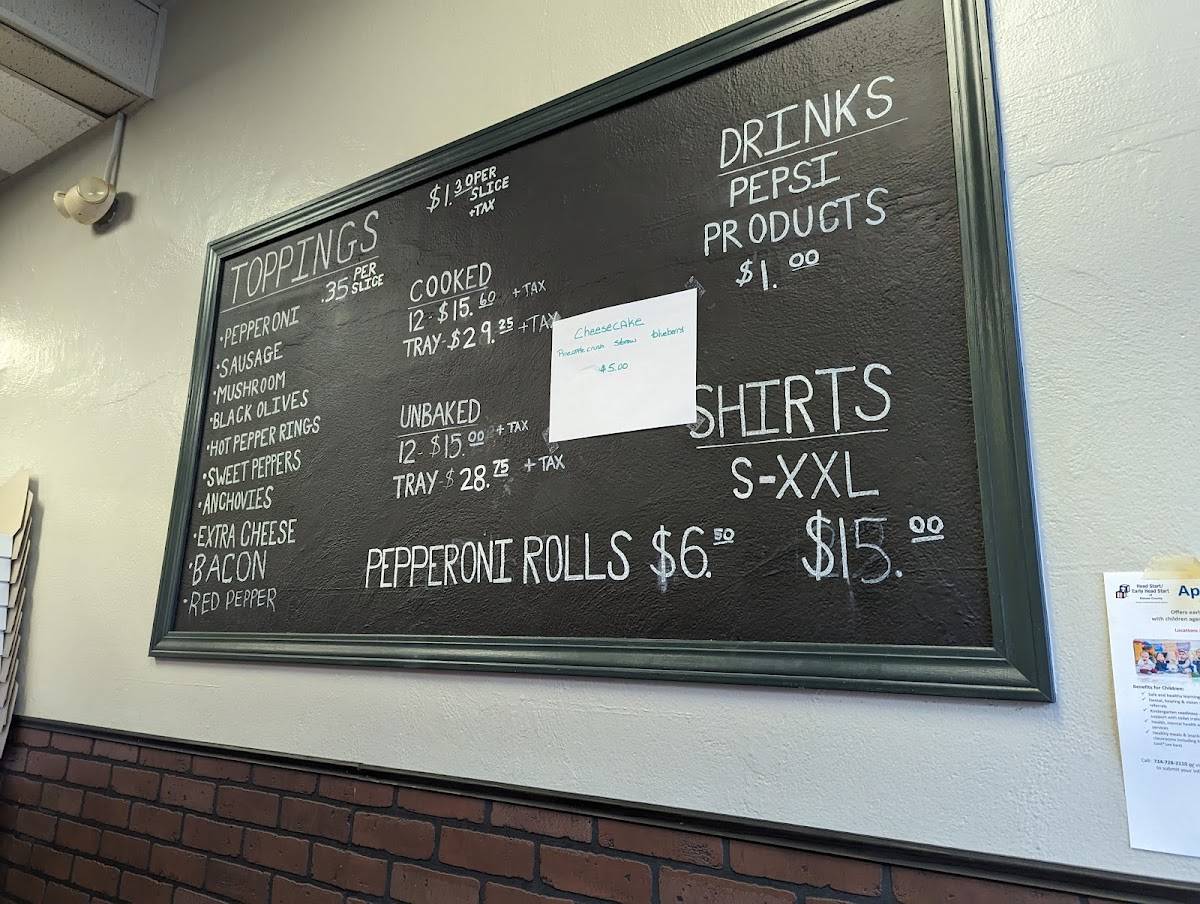 $1.30 PER
SLICE
+TAX
TOPPINGS
.35 PER
SLICE
•PEPPERONI
•SAUSAGE
•MUSHROOM
•BLACK OLIVES
•HOT PEPPER RINGS
•SWEET PEPPERS
•ANCHOVIES
•EXTRA CHEESE
•BACON
•RED PEPPER
COOKED
12-$15.60 +TAX
TRAY-$29.25 +TAX
UNBAKED
12-$15.00 +TAX
TRAY-$28.75 +TAX
PEPPERONI ROLLS $6.50
CheeseCAKe
blueberry
$5.00
DRINKS
PEPSI
PRODUCTS
$1.00
SHIRTS
S-XXL
$15.00
Head Start/
Early Head Start
Ap
Offers earl
with children age
Locations
Benefits for Children: